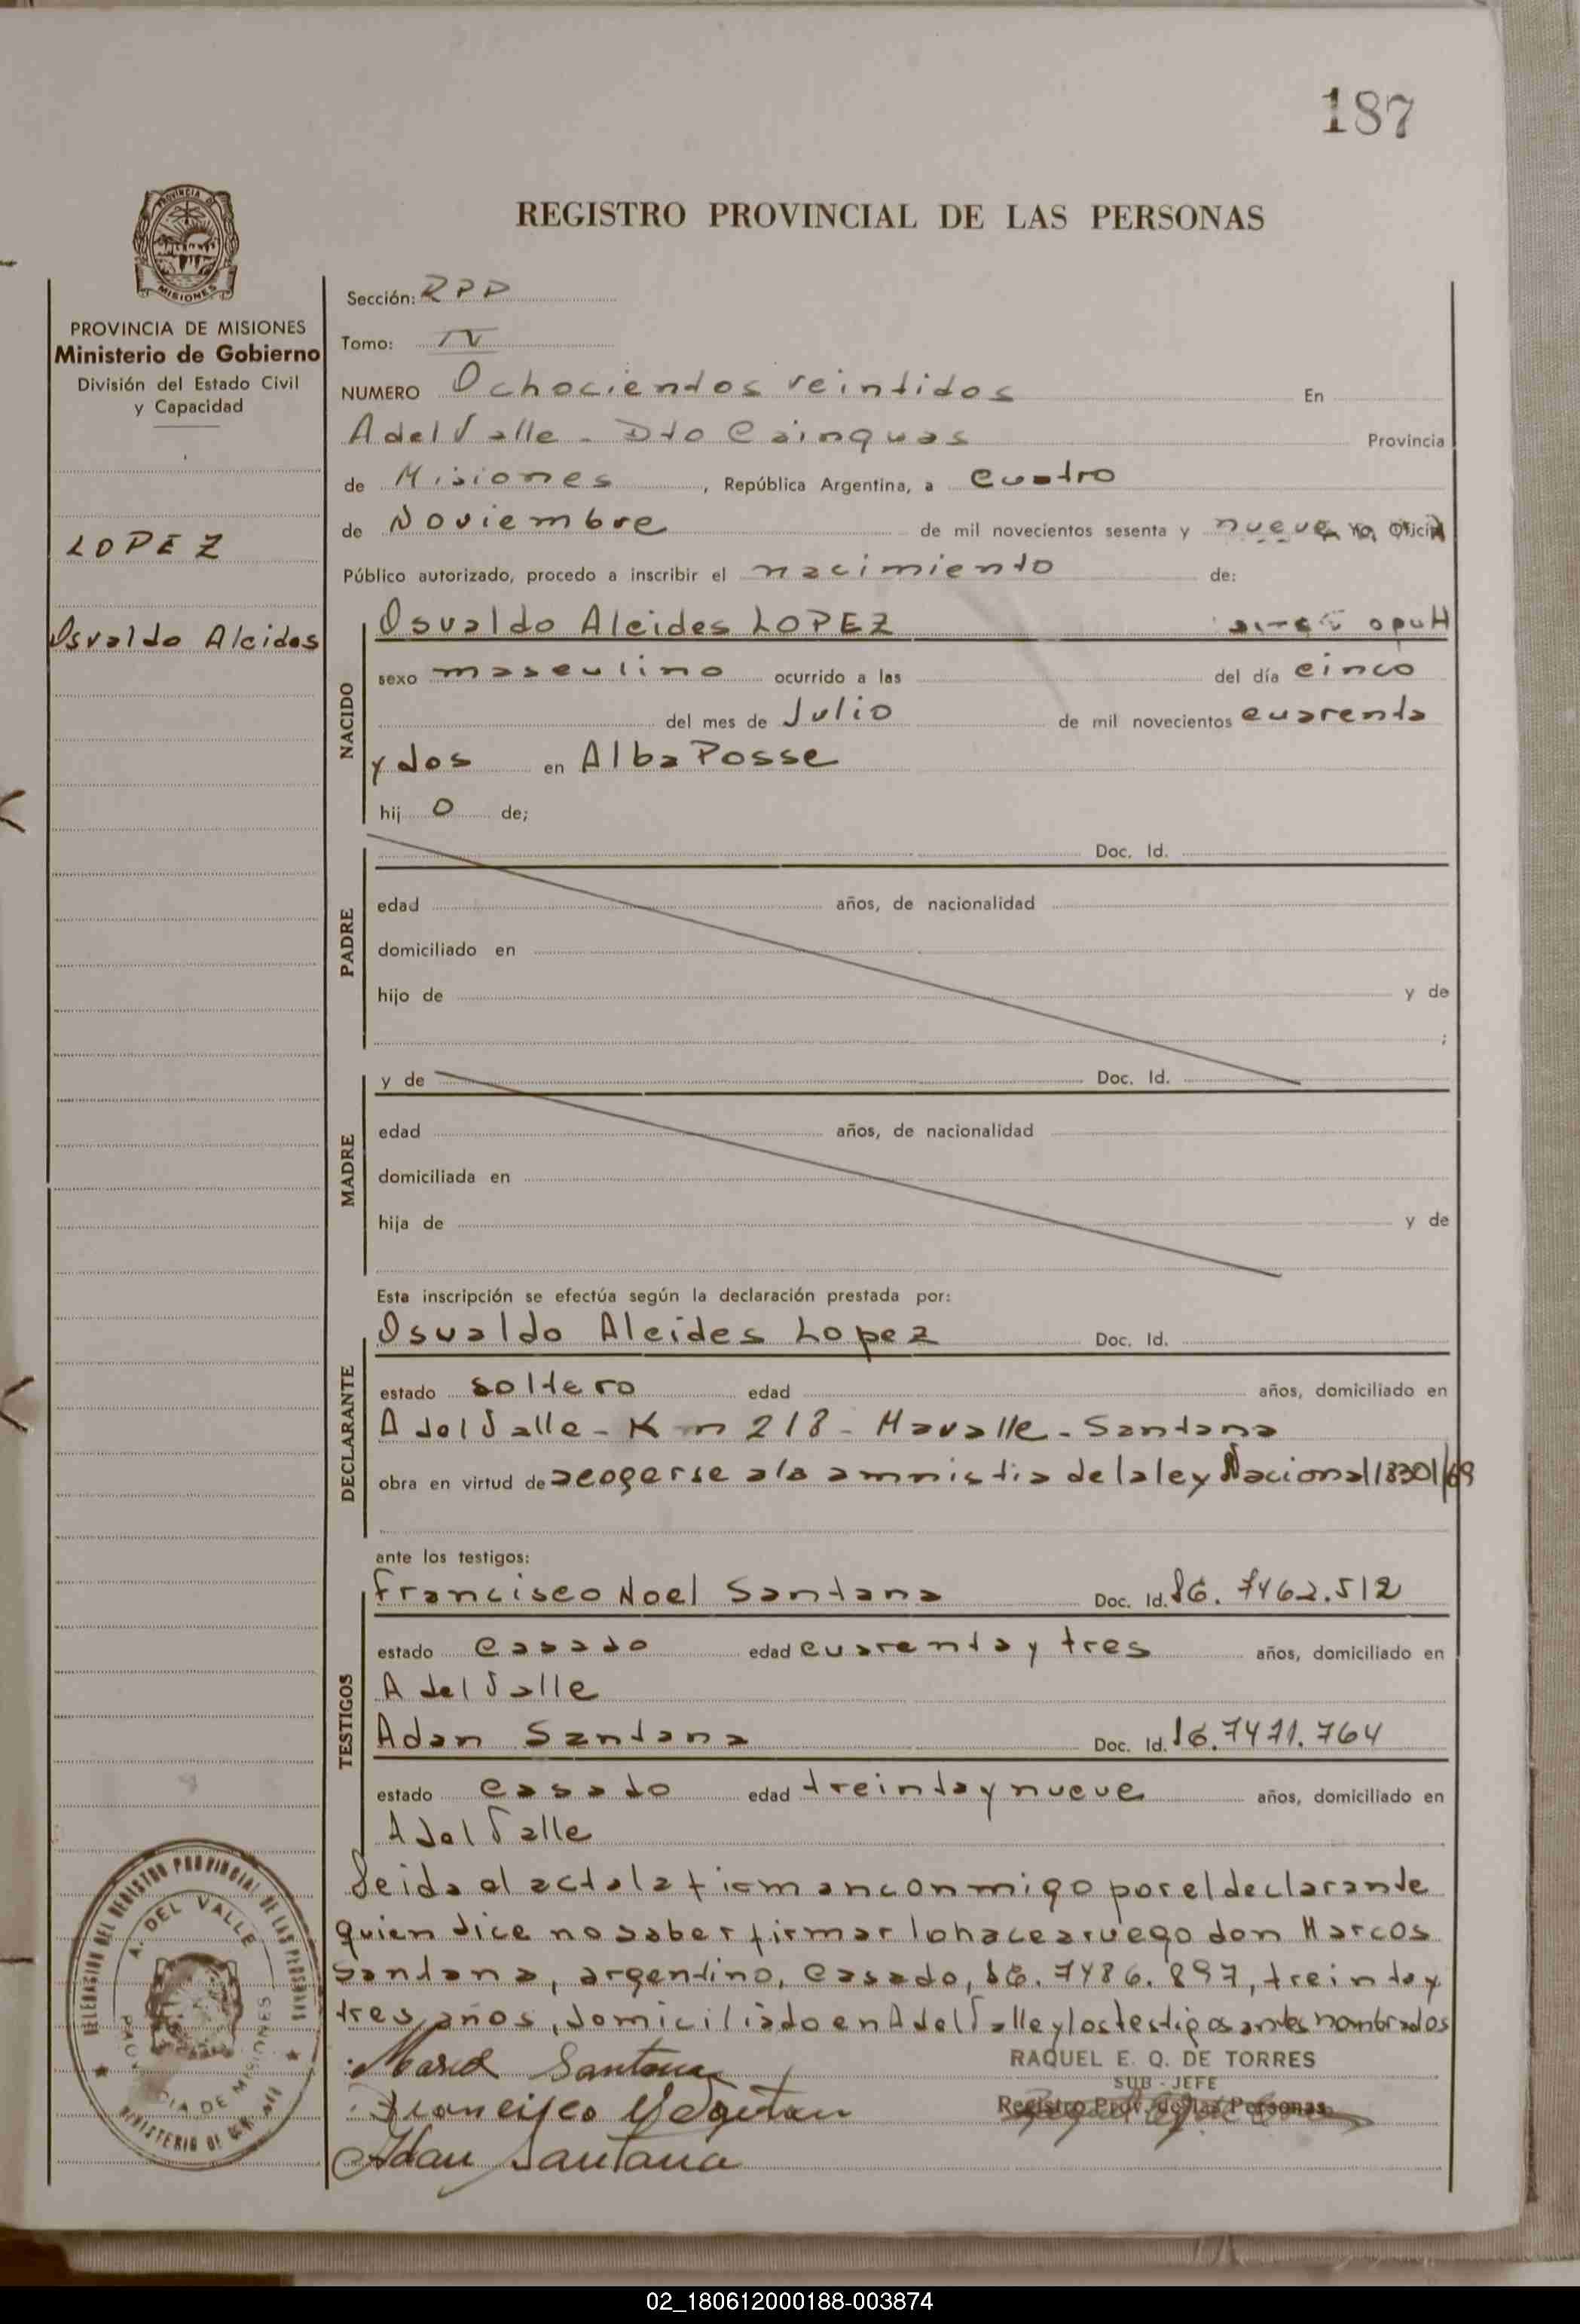 187
REGISTRO PROVINCIAL DE LAS PERSONAS
PROVINCIA DE MISIONES
Ministerio de Gobierno
División del Estado Civil
y Capacidad
LOPEZ
Osvaldo Alcides
Sección: RPP
Tomo: IV
NUMERO Ochocientos veintidos En
A del Valle - Dto Cainguas Provincia
de Misiones, República Argentina, a cuatro
de Noviembre de mil novecientos sesenta y nueve, Yo, Oficial
Público autorizado, procedo a inscribir el nacimiento de:
NACIDO
Osvaldo Alcides LOPEZ
sexo masculino ocurrido a las del día cinco
del mes de Julio de mil novecientos cuarenta
y dos en Alba Posse
hij o de;
PADRE
Doc. Id.
edad años, de nacionalidad
domiciliado en
hijo de y de
;
MADRE
y de Doc. Id.
edad años, de nacionalidad
domiciliada en
hija de y de
Esta inscripción se efectúa según la declaración prestada por:
DECLARANTE
Osvaldo Alcides Lopez Doc. Id.
estado soltero edad años, domiciliado en
A del Valle - Km 218 - Havalle - Santana
obra en virtud de acogerse a la amnistia de la ley Nacional 18301/69
ante los testigos:
TESTIGOS
Francisco Noel Santana Doc. Id. 7462.512
estado casado edad cuarenta y tres años, domiciliado en
A del Valle
Adan Santana Doc. Id. 7471.764
estado casado edad treinta y nueve años, domiciliado en
A del Valle
Leida el acta la firman conmigo por el declarante
quien dice no saber firmar lo hace a ruego don Marcos
Santana, argentino, casado, 7486.897, treinta y
tres años, domiciliado en A del Valle y los testigos antes nombrados
Santana
Francisco
Adan Santana
RAQUEL E. Q. DE TORRES
SUB - JEFE
Registro Prov. de las Personas
DELEGACION DEL REGISTRO PROVINCIAL DE LAS PERSONAS
A. DEL VALLE
PROVINCIA DE MISIONES
MINISTERIO DE
02_180612000188-003874